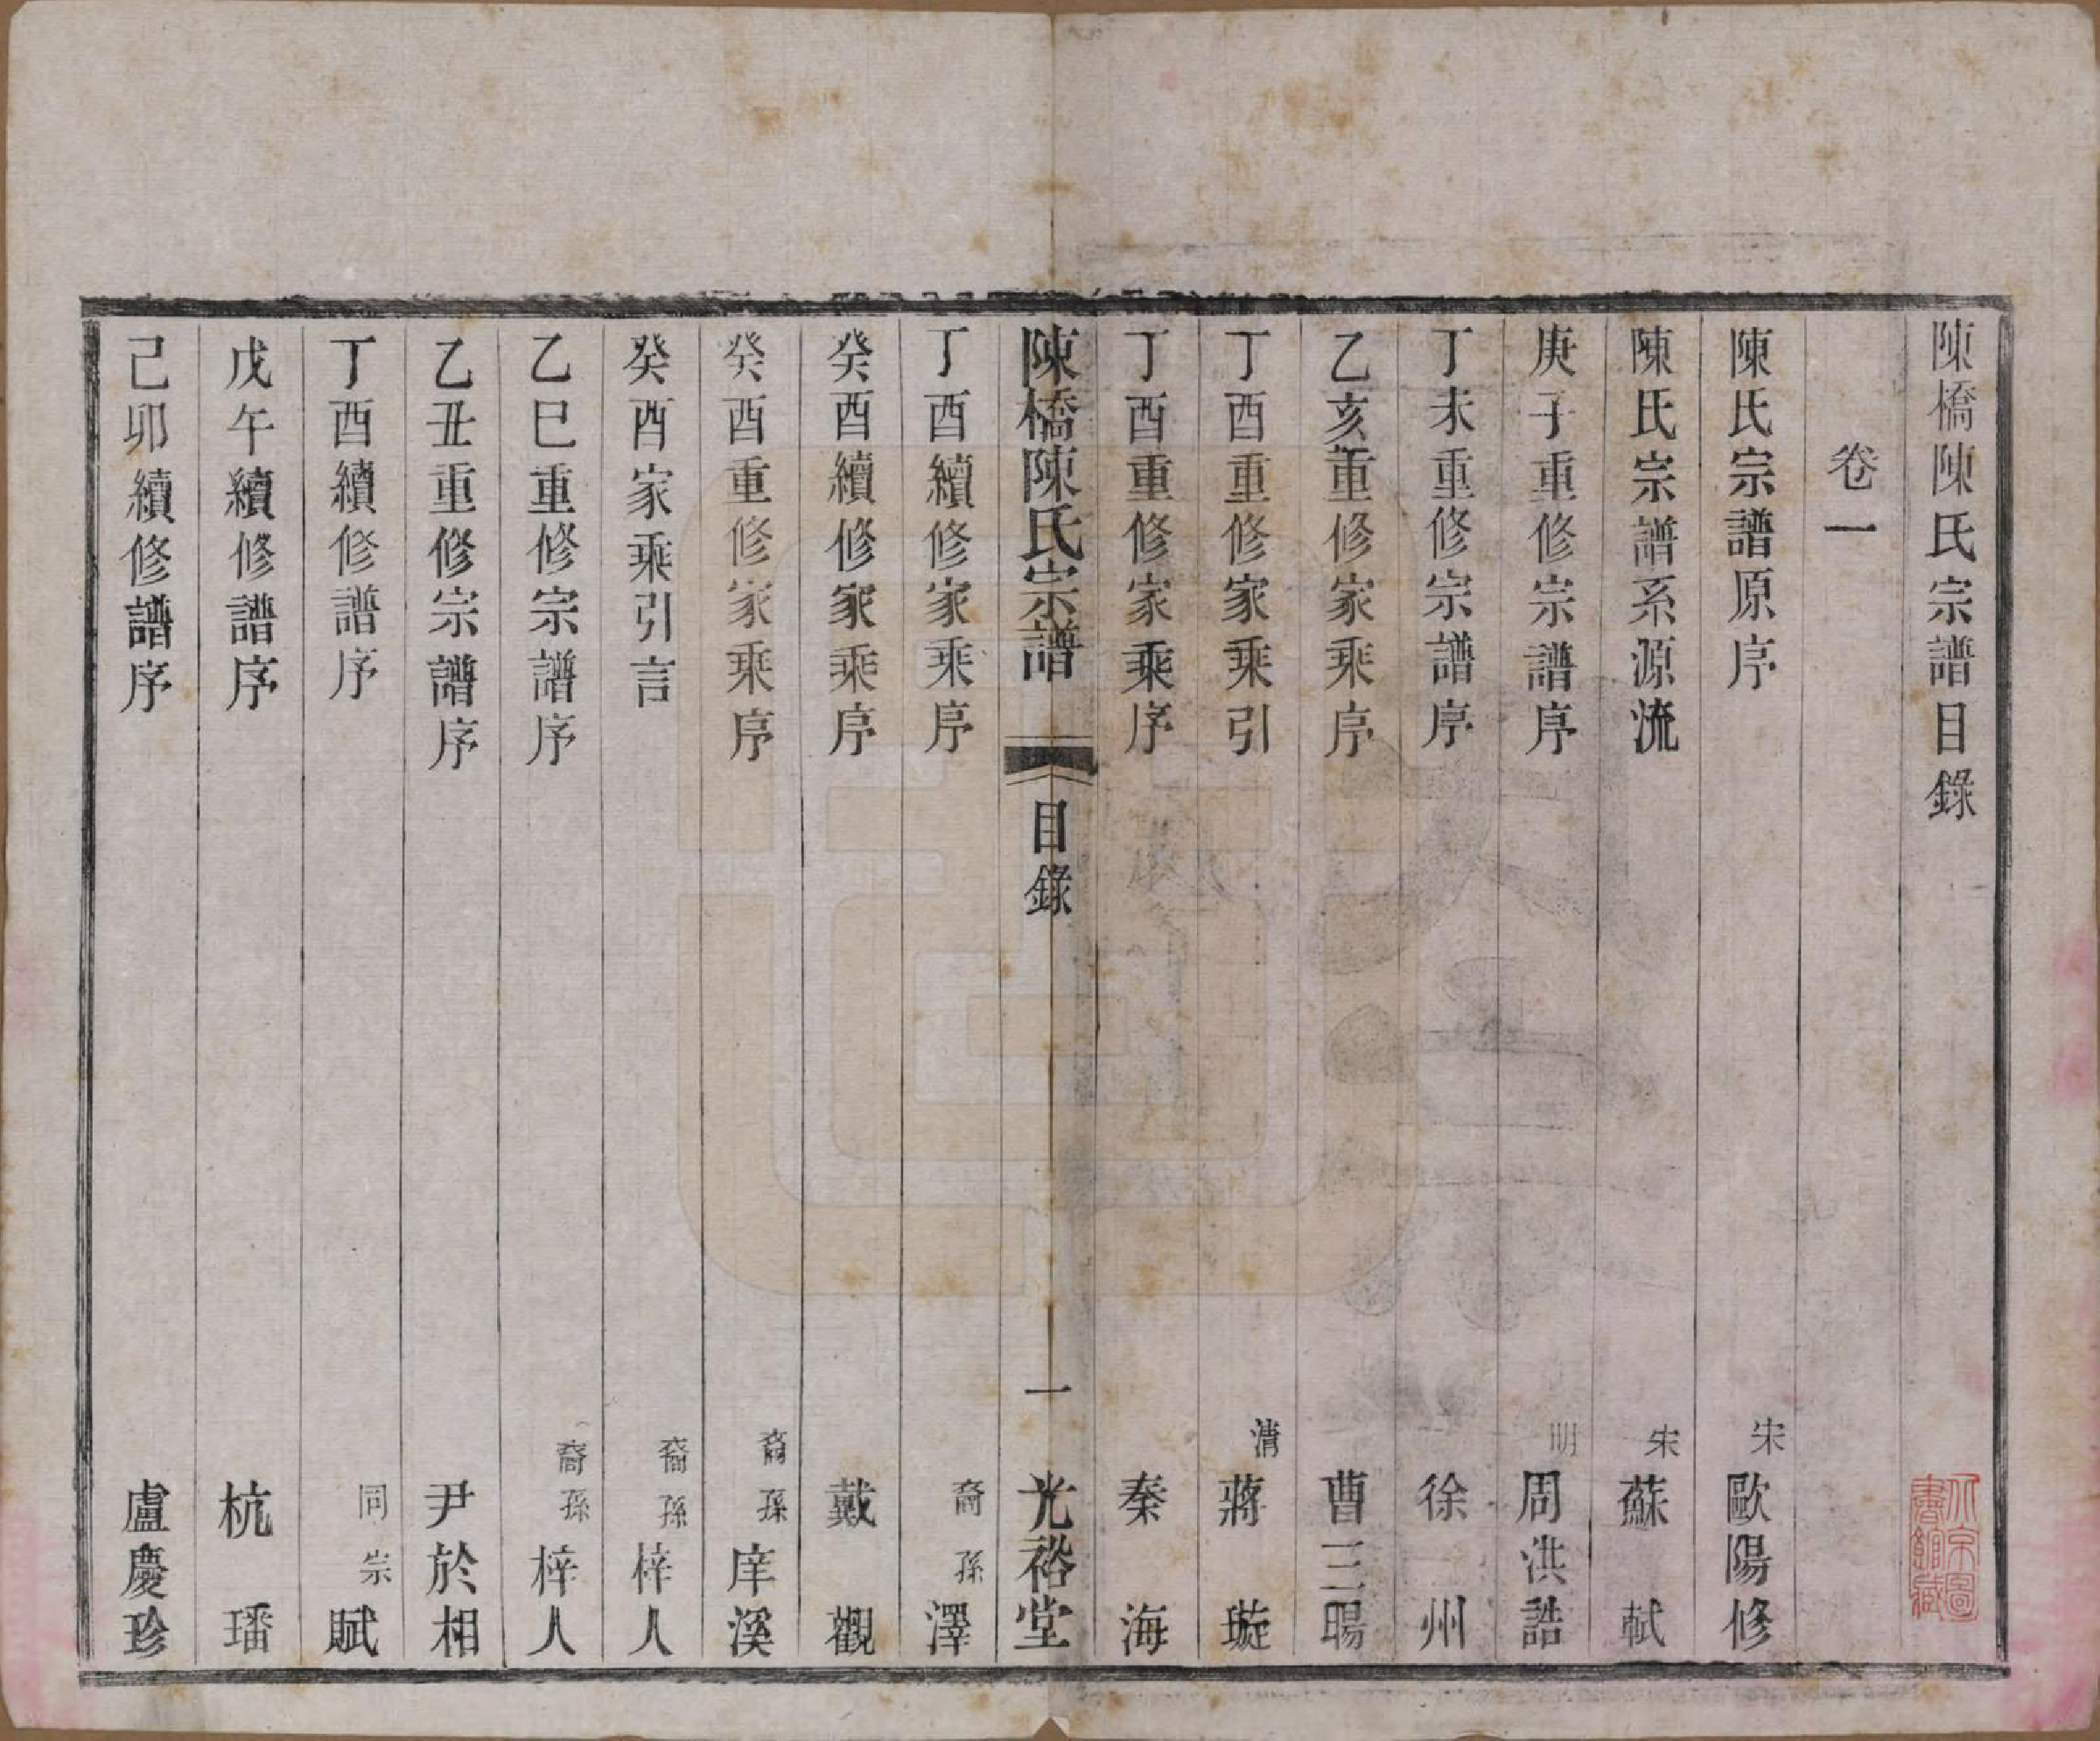 陳橋陳氏宗譜目錄
卷一
陳氏宗譜原序 宋 歐陽修
陳氏宗譜系源流 宋 蘇軾
庚子重修宗譜序 明 周洪誥
丁未重修宗譜序 徐州
乙亥重修家乘序 曹三暘
丁酉重修家乘引 清 蔣璇
丁酉重修家乘序 秦海
陳橋陳氏宗譜 目錄 一 光裕堂
丁酉續修家乘序 裔孫 澤
癸酉續修家乘序 戴觀
癸酉重修家乘序 裔孫 庠溪
癸酉家乘引言 裔孫 梓人
乙巳重修宗譜序 裔孫 梓人
乙丑重修宗譜序 尹於相
丁酉續修譜序 同宗 賦
戊午續修譜序 杭璠
己卯續修譜序 盧慶珍
北京圖書館藏